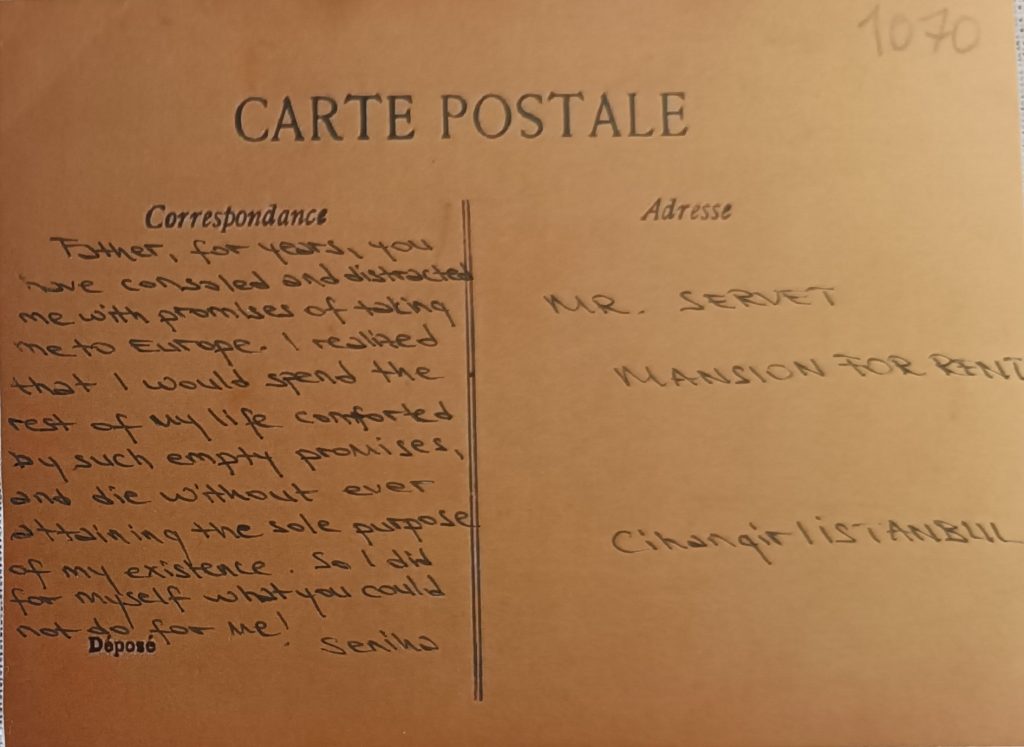 1070
CARTE POSTALE
Correspondance
Father, for years, you
have consoled and distracted
me with promises of taking
me to Europe. I realized
that I would spend the
rest of my life comforted
by such empty promises,
and die without ever
attaining the sole purpose
of my existence. So I did
for myself what you could
not do for me!
Seniha
Déposé
Adresse
MR. SERVET
MANSION FOR RENT
Cihangir / İSTANBUL